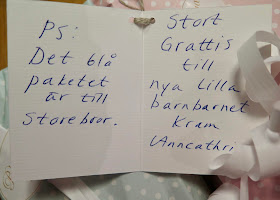 PS:
Det blå
paketet
är till
storebror.
Stort
Grattis
till
nya Lilla
barnbarnet
Kram